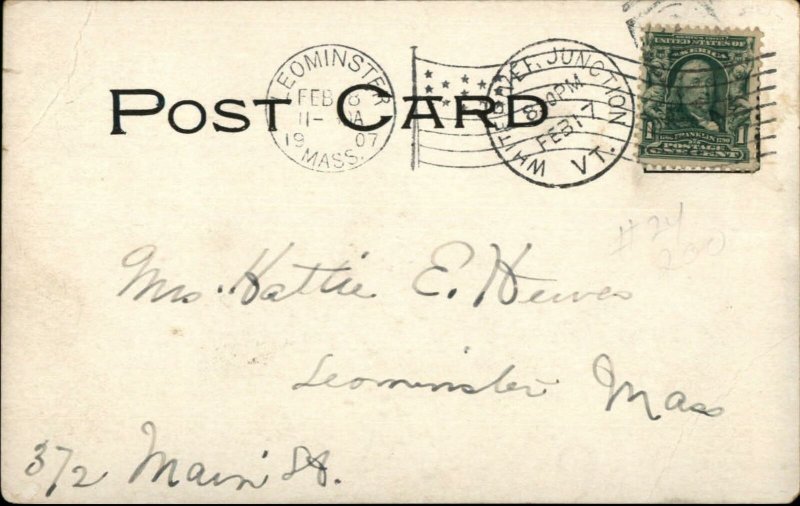 POST CARD
LEOMINSTER
FEB 8
11- A
19 07
MASS.
WHITE RIVER JUNCTION
8 30PM
FEB 17
VT.
UNITED STATES OF AMERICA
1 FRANKLIN 1
POSTAGE
ONE CENT
#24
200
Mrs. Hattie E. Hewes
Leominster Mass
372 Main St.